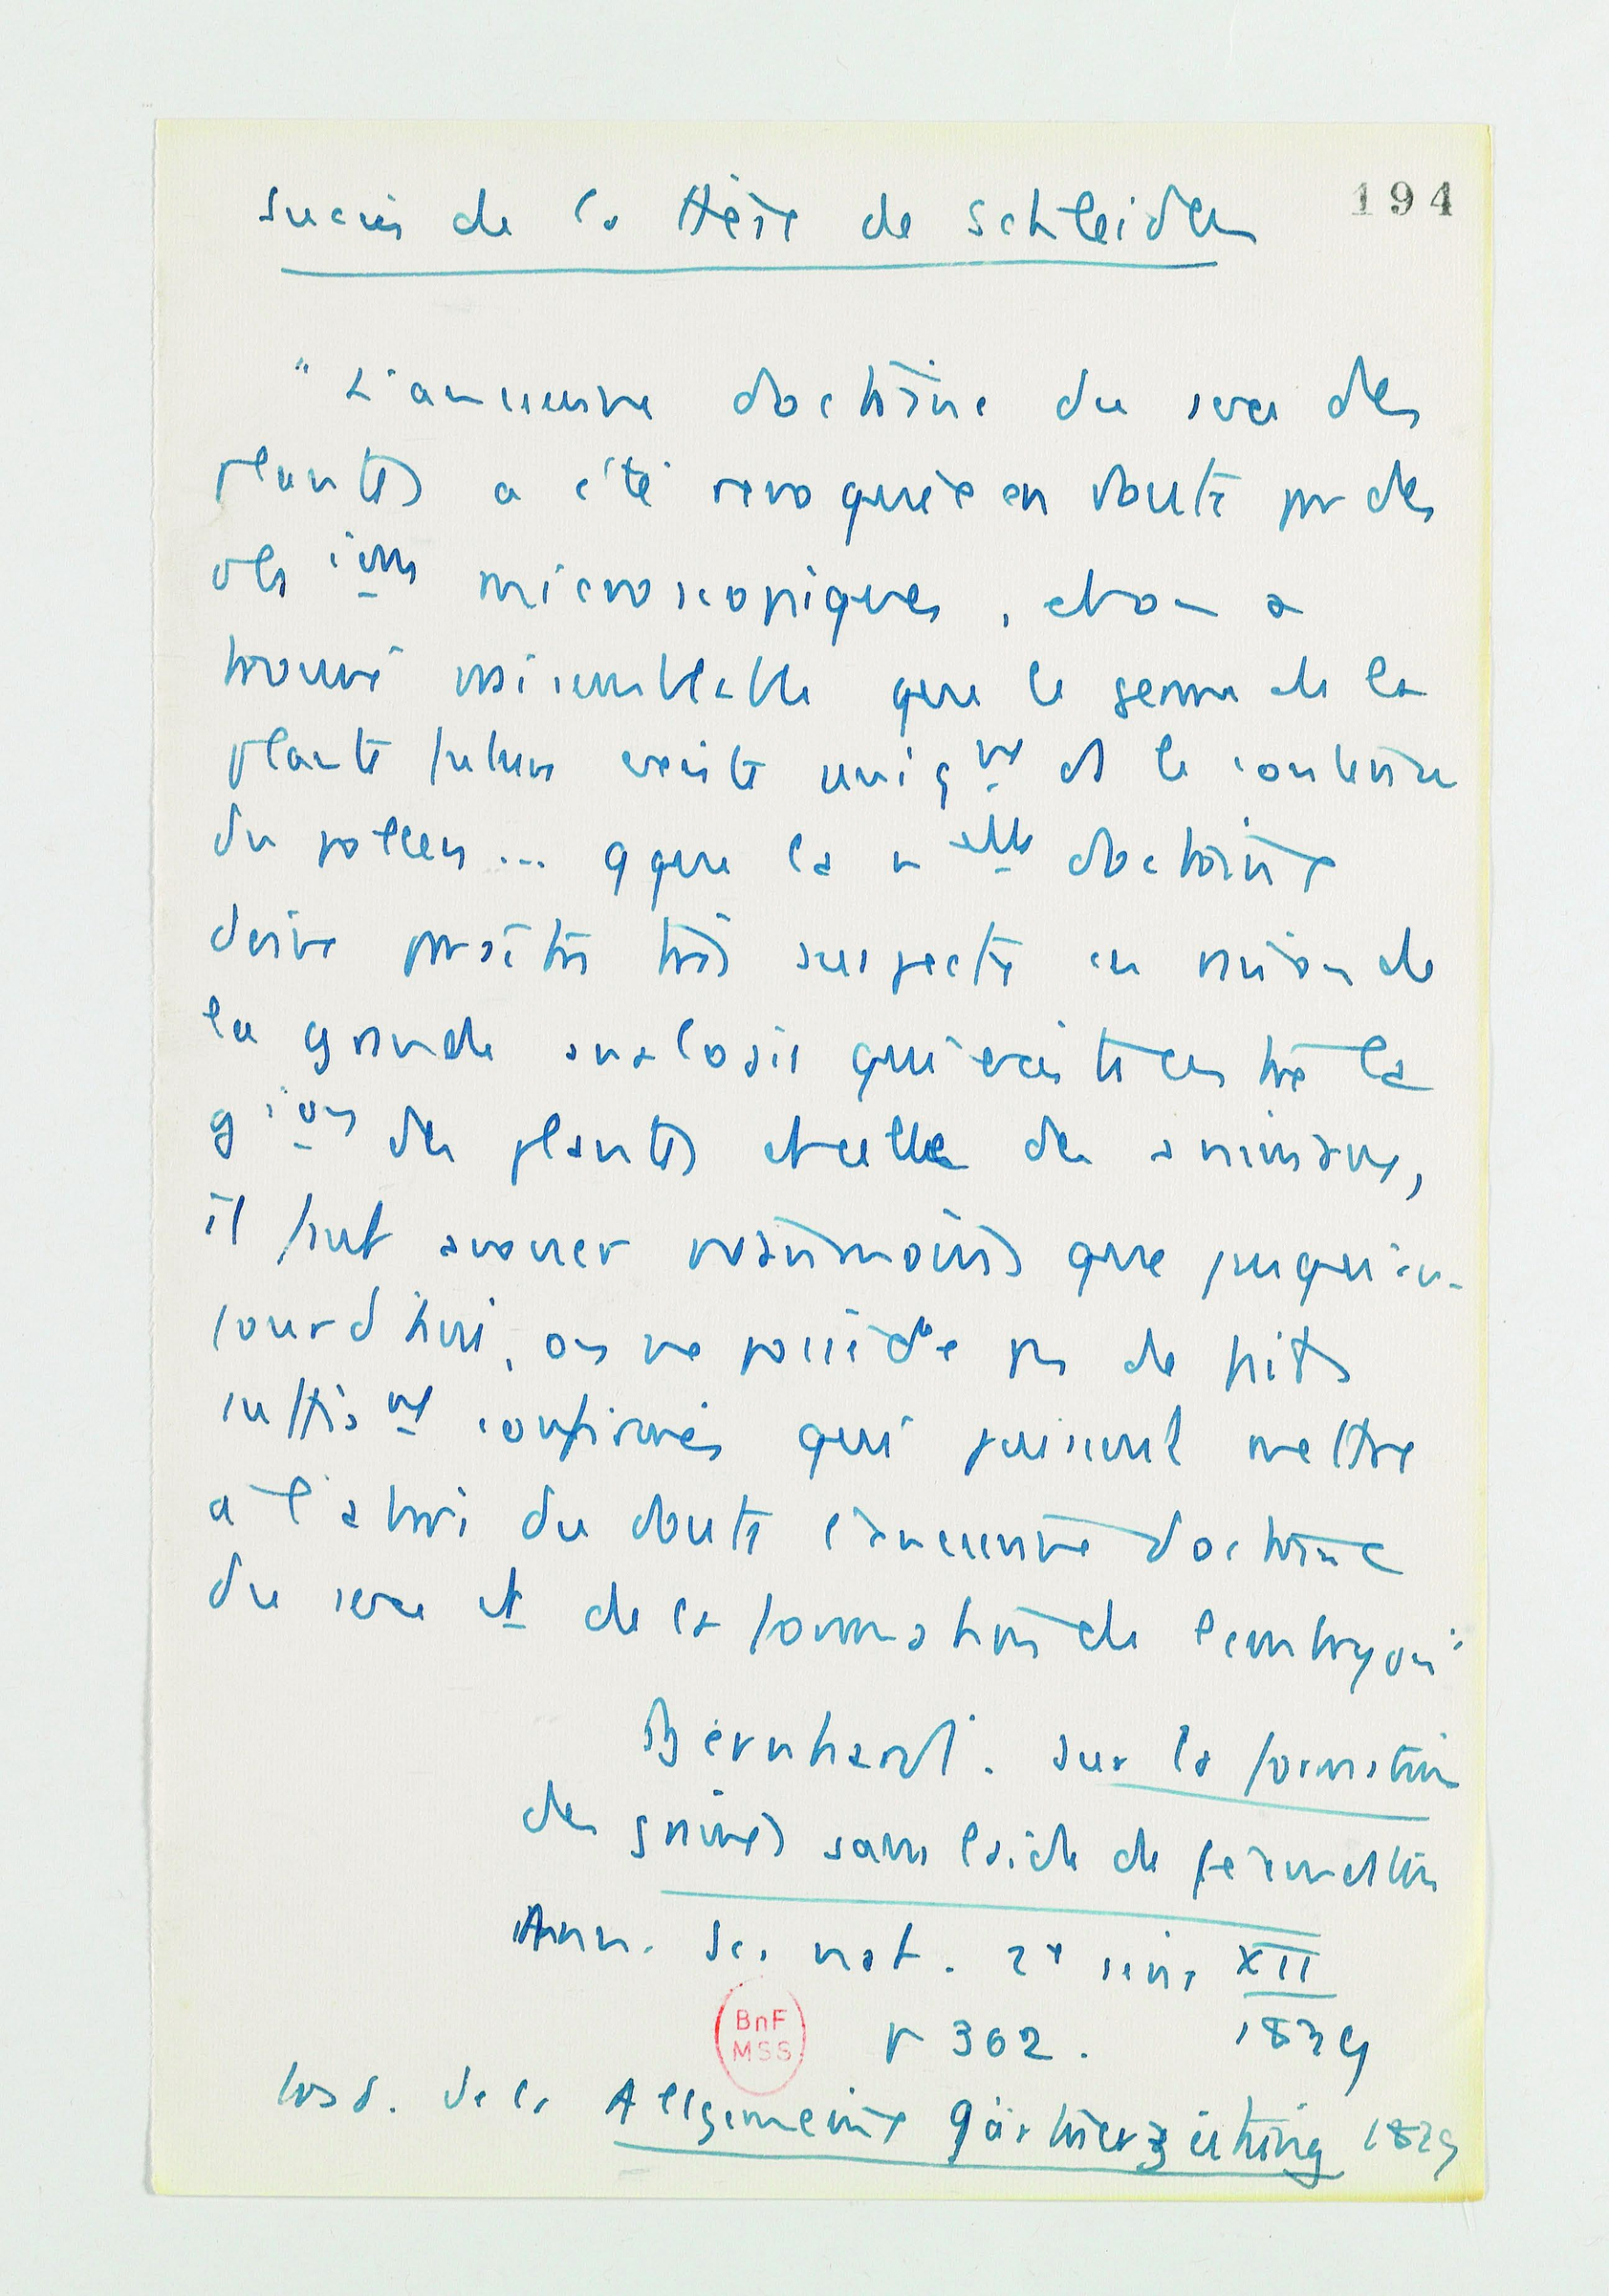 194
Succès de la thèse de Schleiden
"L'ancienne doctrine du sexe des
plantes a été revoquée en doute par des
obs ions microscopiques, et on a
trouvé vraisemblable que le germe de la
plante future existe uniq nt ds le contenu
du pollen... Qque la n elle doctrine
doive paraître très suspecte en raison de
la grande analogie qui existe entre la
g ion des plantes et celle des animaux,
il faut avouer néanmoins que jusqu'au-
jourd'hui, on ne possède pas de faits
suffis nt confirmés qui puissent mettre
à l'abri du doute l'ancienne doctrine
du sexe et de la formation de l'embryon"
Bernhardi. Sur la formation
des graines sans l'aide de fécondation
Ann. Sc. nat. 2e série XII
p 362. 1839
BnF
MSS
trad. de la Allgemeine Gärtnerzeitung 1839